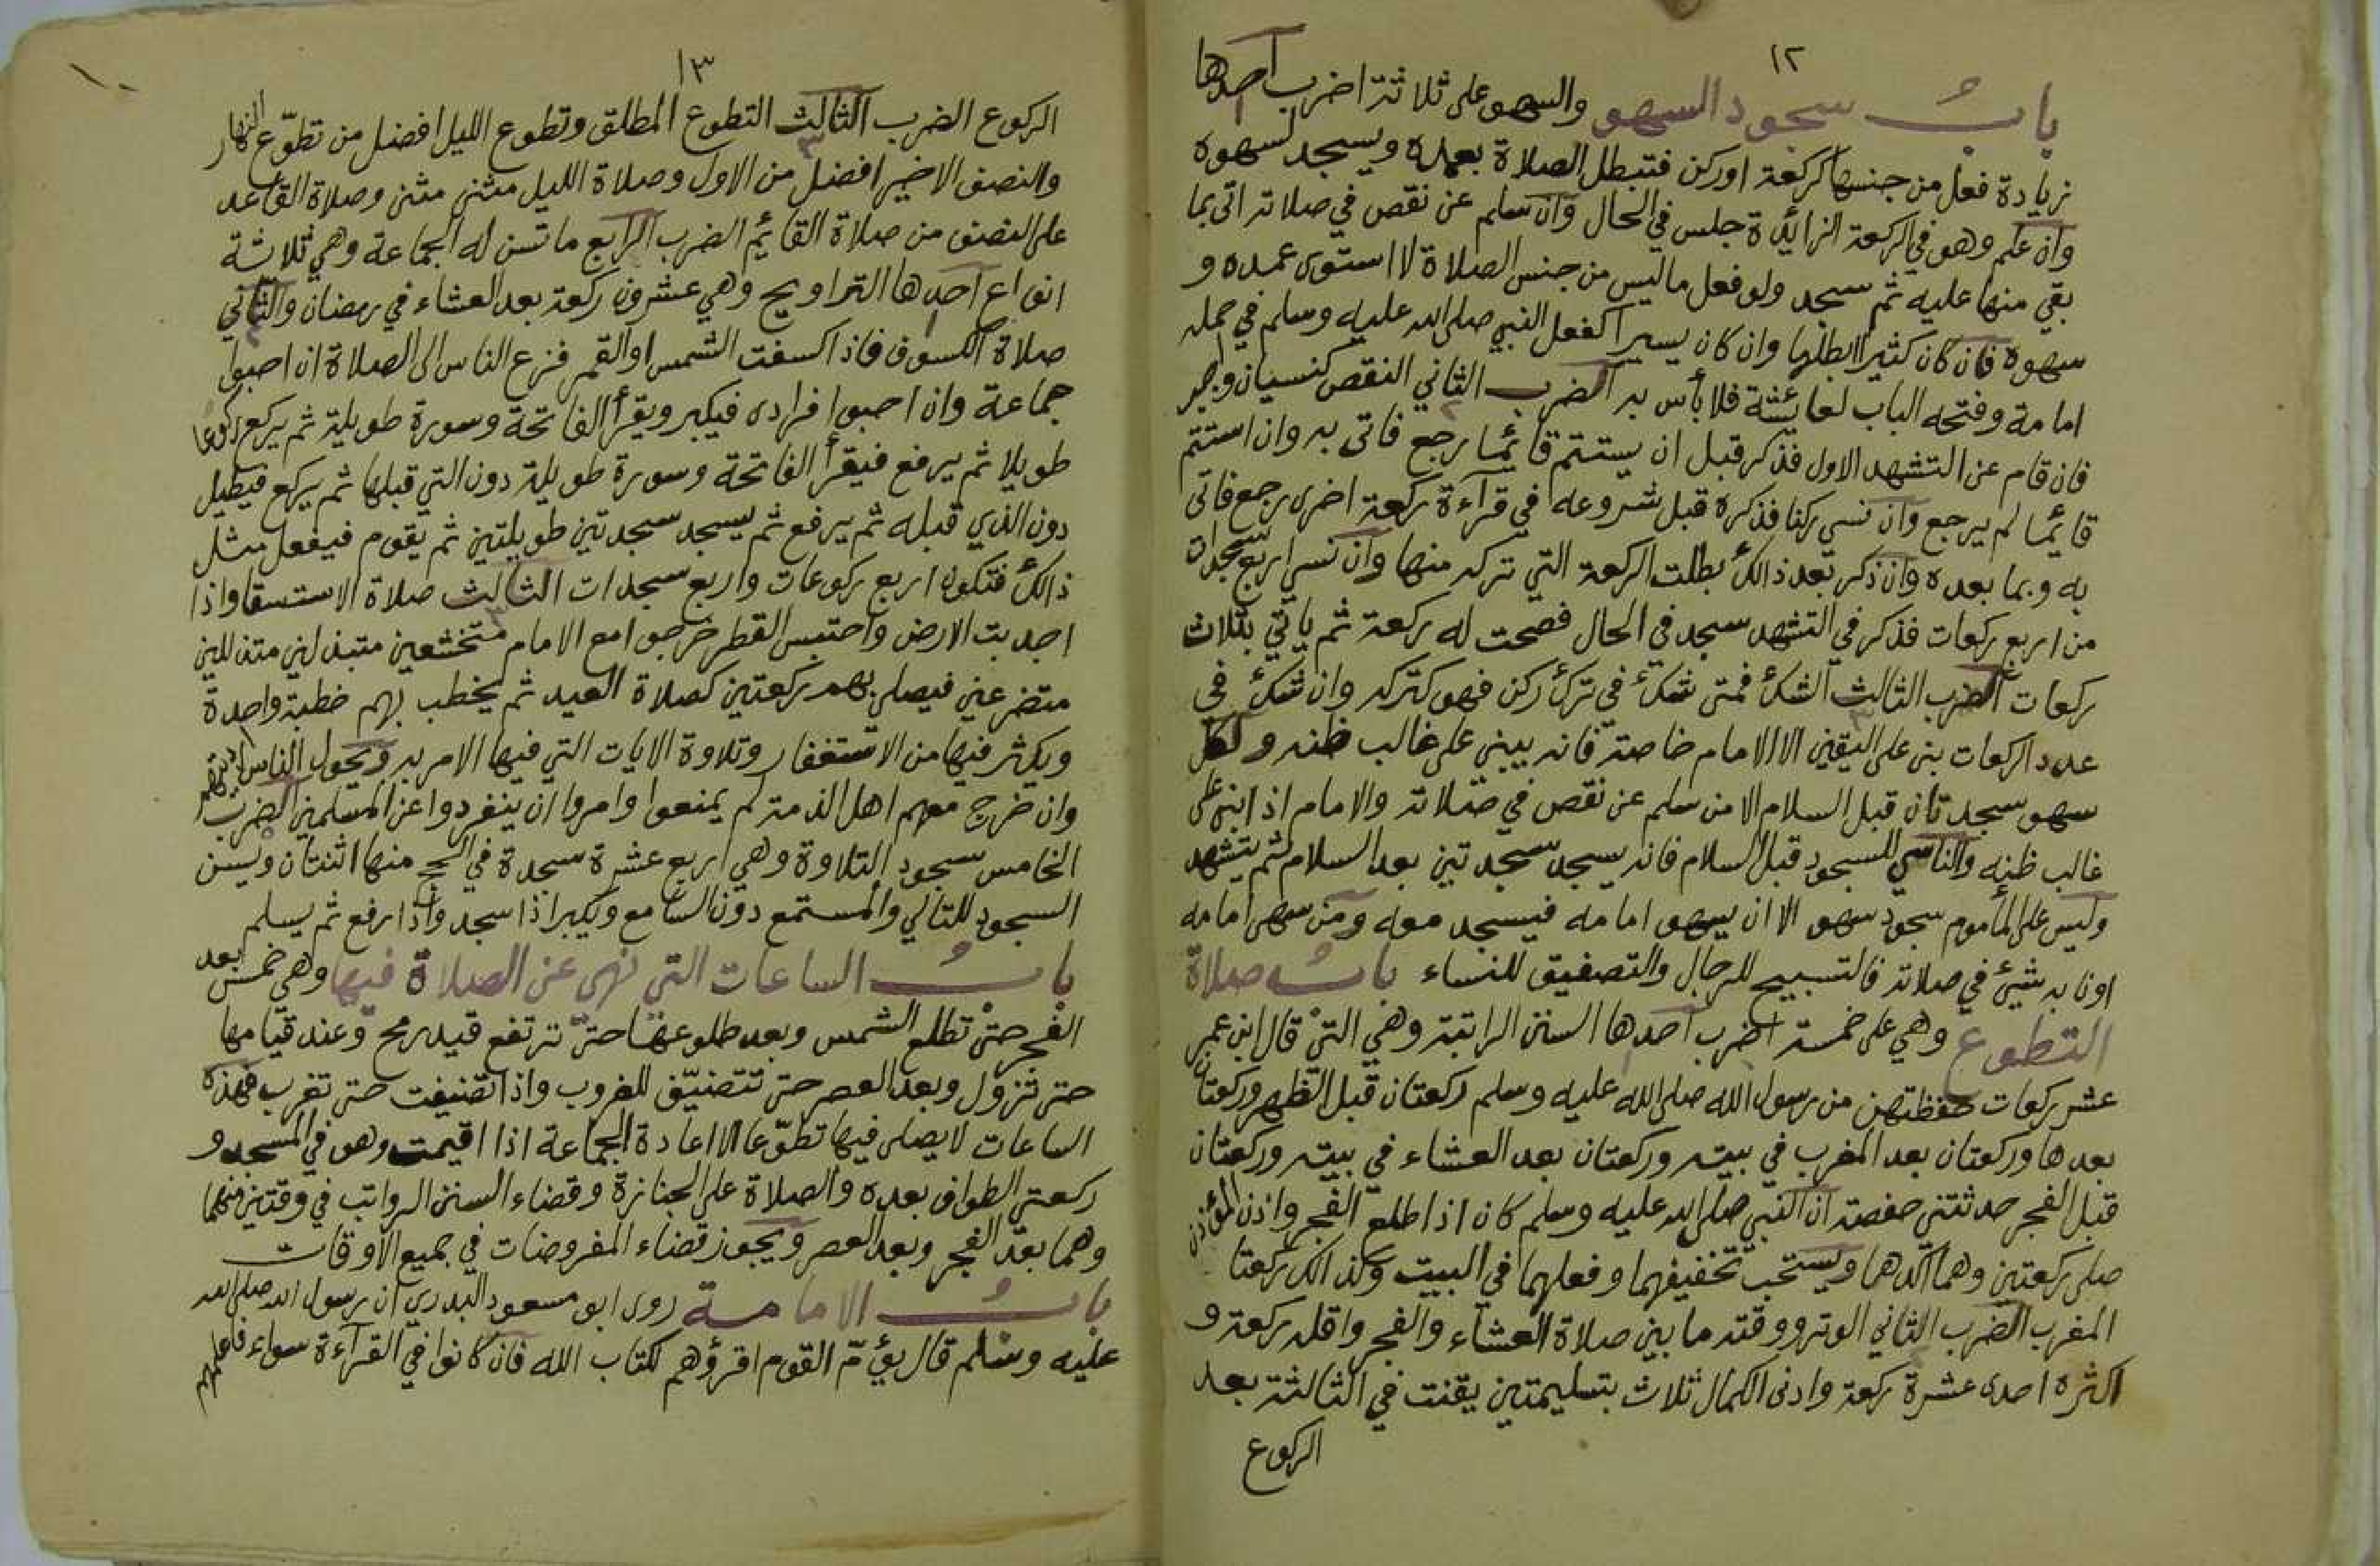 ١٢
باب سجود السهو والسهو على ثلاثة اضرب احدها
زيادة فعل من جنسها كركعة اوركن فتبطل الصلاة بعمده ويسجد لسهوه
وان علم وهو في الركعة الزائدة جلس في الحال وان سلم عن نقص في صلاته اتى بما
بقي منها عليه ثم سجد ولو فعل ما ليس من جنس الصلاة لاستوى عمده و
سهوه فان كان كثيرا ابطلها وان كان يسيرا كفعل النبي صلى الله عليه وسلم في حمله
امامة وفتحه الباب لعائشة فلا بأس به الضرب الثاني النقص كنسيان واجب
فان قام عن التشهد الاول فذكر قبل ان يستتم قائما رجع فاتى به وان استتم
قائما لم يرجع وان نسي ركنا فذكره قبل شروعه في قرآءة ركعة اخرى رجع فاتى
به وبما بعده وان ذكر بعد ذالك بطلت الركعة التي تركه منها وان نسي اربع سجدات
من اربع ركعات فذكر في التشهد سجد في الحال فصحت له ركعة ثم يأتي بثلاث
ركعات الضرب الثالث الشك فمتى شك في ترك ركن فهو كتركه وان شك في
عدد الركعات بنى على اليقين الا الامام خاصة فانه يبني على غالب ظنه ولكل
سهو سجدتان قبل السلام الا من سلم عن نقص في صلاته والامام اذا بنى على
غالب ظنه والناسي للسجود قبل السلام فانه يسجد سجدتين بعد السلام ثم يتشهد
وليس على المأموم سجود سهو الا ان يسهو امامه فيسجد معه ومن سهى امامه
اوناب شيئ في صلاته فالتسبيح للرجال والتصفيق للنساء باب صلاة
التطوع وهي على خمسة اضرب احدها السنن الراتبة وهي التي قال ابن عمر
عشر ركعات حفظتهن من رسول الله صلى الله عليه وسلم ركعتان قبل الظهر وركعتان
بعدها وركعتان بعد المغرب في بيته وركعتان بعد العشاء في بيته وركعتان
قبل الفجر حدثتني حفصة ان النبي صلى الله عليه وسلم كان اذا طلع الفجر واذن المؤذن
صلى ركعتين وهما آكدها ويستحب تخفيفهما وفعلهما في البيت وكذالك ركعتا
المغرب الضرب الثاني الوتر ووقته ما بين صلاة العشاء والفجر واقله ركعة و
اكثره احدى عشرة ركعة وادنى الكمال ثلاث بتسليمتين يقنت في الثالثة بعد
الركوع
١٣
الركوع الضرب الثالث التطوع المطلق وتطوع الليل افضل من تطوّع النهار
والنصف الاخير افضل من الاول وصلاة الليل مثنى مثنى وصلاة القاعد
على النصف من صلاة القائم الضرب الرابع ما تسن له الجماعة وهي ثلاثة
انواع احدها التراويح وهي عشرون ركعة بعد العشاء في رمضان والثاني
صلاة الكسوف فاذا كسفت الشمس اوالقمر فزع الناس الى الصلاة ان احبوا
جماعة وان احبوا فرادى فيكبر ويقرأ الفاتحة وسورة طويلة ثم يركع ركوعا
طويلا ثم يرفع فيقرأ الفاتحة وسورة طويلة دون التي قبلها ثم يركع فيطيل
دون الذي قبله ثم يرفع ثم يسجد سجدتين طويلتين ثم يقوم فيفعل مثل
ذالك فتكون اربع ركوعات واربع سجدات الثالث صلاة الاستسقا واذا
اجدبت الارض واحتبس القطر خرجوا مع الامام متخشعين متبذلين متذللين
متضرعين فيصلي بهم ركعتين كصلاة العيد ثم يخطب بهم خطبة واحدة
ويكثر فيها من الاستغفار وتلاوة الايات التي فيها الامر به ويحول الناس ارديتهم
وان خرج معهم اهل الذمة لم يمنعوا وامروا ان ينفردوا عن المسلمين الضرب
الخامس سجود التلاوة وهي اربع عشرة سجدة في الحج منها اثنتان ويسن
السجود للتالي والمستمع دون السامع ويكبر اذا سجد واذا رفع ثم يسلم
باب الساعات التي نهى عن الصلاة فيها وهي خمس بعد
الفجر حتى تطلع الشمس وبعد طلوعها حتى ترتفع قيد رمح وعند قيامها
حتى تزول وبعد العصر حتى تتضيّف للغروب واذا تضيفت حتى تغرب فهذه
الساعات لا يصلى فيها تطوّعا الا اعادة الجماعة اذا اقيمت وهو في المسجد و
ركعتي الطواف بعده والصلاة على الجنازة وقضاء السنن الرواتب في وقتين منها
وهما بعد الفجر وبعد العصر ويجوز قضاء المفروضات في جميع الاوقات
باب الامامة روى ابو مسعود البدري ان رسول الله صلى الله
عليه وسلم قال يؤمّ القوم اقرؤهم لكتاب الله فان كانوا في القرآءة سواء فاعلمهم